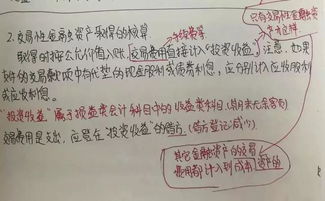 只有交易性金融资产
才这样
2.交易性金融资产取得的核算
手续费等
取得时按公允价值入账，交易费用直接计入"投资收益"。注意：如果
支付的交易款项中有已宣告的现金股利或债券利息，应分别计入应收股利
或应收利息。
"投资收益"属于损益类会计科目中的收益类科目。(期末无余额)
交易费用是支出，应登在"投资收益"的借方。(借方登记减少)
其它金融资产的交易
费用都计入到成本